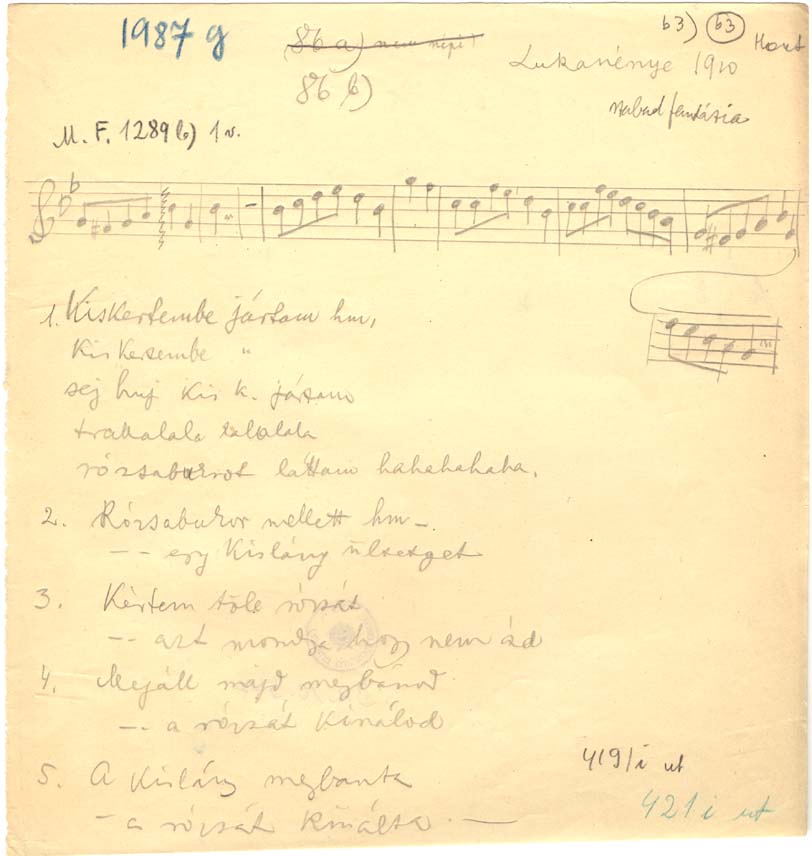 1987 g
86 a) nem népi
b3) b3 Hont
Lukanénye 1910
86 b)
szabad fantázia
M. F. 1289 b) 1 v.
1. Kiskertembe jártam hm,
Kiskertembe "
sej huj kis k. jártam
trallalala lalalala
rózsabokrot láttam hahahahaha.
2. Rózsabokor mellett hm –
– – egy kislány ülsetget
3. Kértem tőle rózsát
– – azt mondja hogy nem ád
4. Megáll majd megbánod
– – a rózsát kinálod
5. A kislány megbánta
– a rózsát kinálta. —
419/i ut
421 i ut